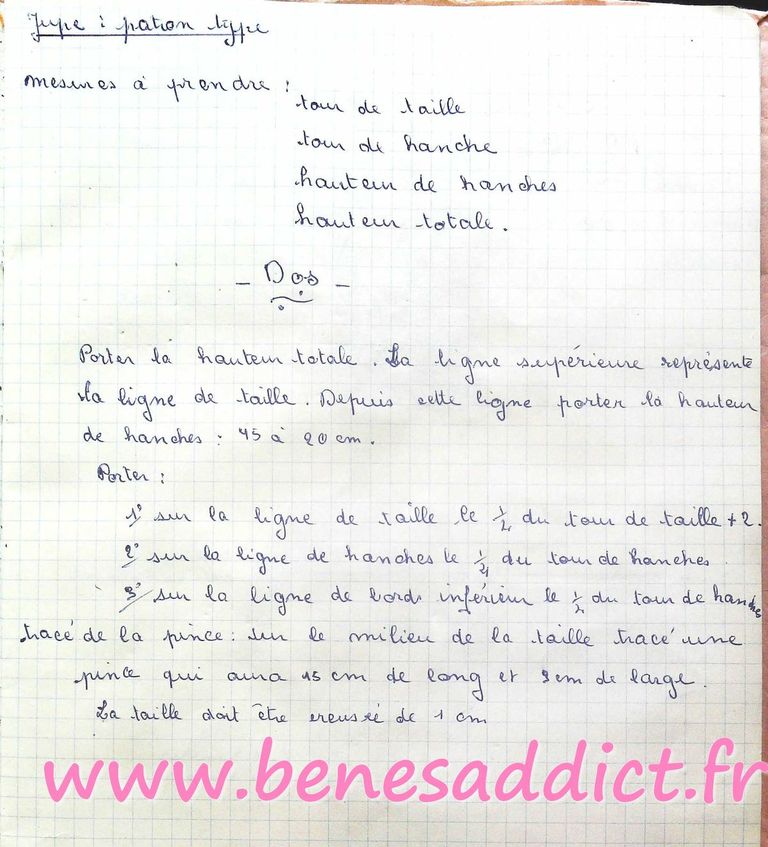 Jupe : patron type
mesures à prendre :
tour de taille
tour de hanche
hauteur de hanches
hauteur totale.
- Dos -
Porter la hauteur totale. La ligne supérieure représente
la ligne de taille. Depuis cette ligne porter la hauteur
de hanches : 15 à 20 cm.
Porter :
1° sur la ligne de taille le 1/4 du tour de taille + 2.
2° sur la ligne de hanches le 1/4 du tour de hanches.
3° sur la ligne de bords inférieur le 1/4 du tour de hanches
tracé de la pince : sur le milieu de la taille tracé une
pince qui aura 15 cm de long et cm de large.
La taille doit être creusée de 1 cm
www.benesaddict.fr